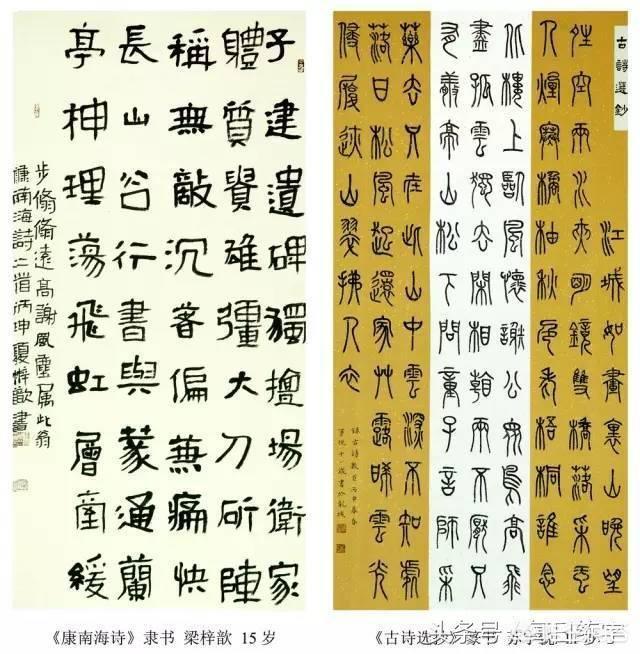 子建遺碑獨擅場衛家
體質貴雄彊大刀斫陣
稱無敵沉著偏兼痛快
長山谷行書與篆通蘭
亭神理蕩飛虹層臺緩
步翛翛遠高謝風塵屬此翁
康南海詩二首丙申夏梓歆書
《康南海诗》隶书 梁梓歆 15岁
古詩選鈔
江城如畫裏山晚望
晴空兩水夾明鏡雙橋落采虹
人煙寒橘柚秋色老梧桐誰念
北樓上臨風懷謝公眾鳥高飛
盡孤雲獨去閑相看兩不厭只
有敬亭山松下問童子言師采
藥去只在此山中雲深不知處
落日松風起還家草露晞雲光
侵履迹山翠拂人衣
《古诗选抄》篆书
头条号 / 每日练字